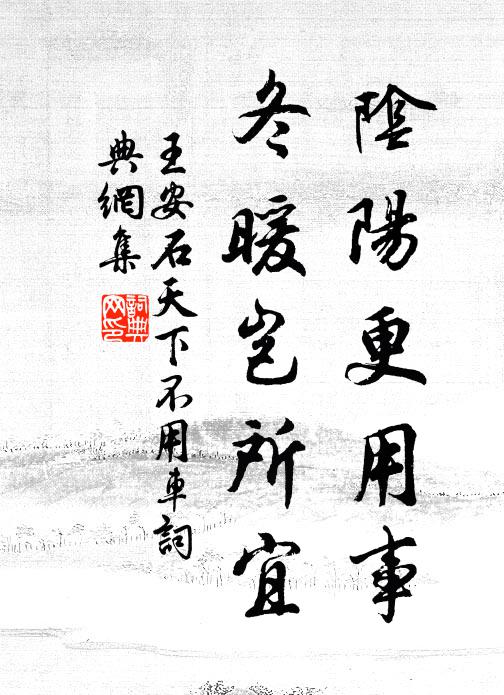 陰陽更用事
冬暖豈所宜
王安石天下不用車詞
典網集
詞典
网印